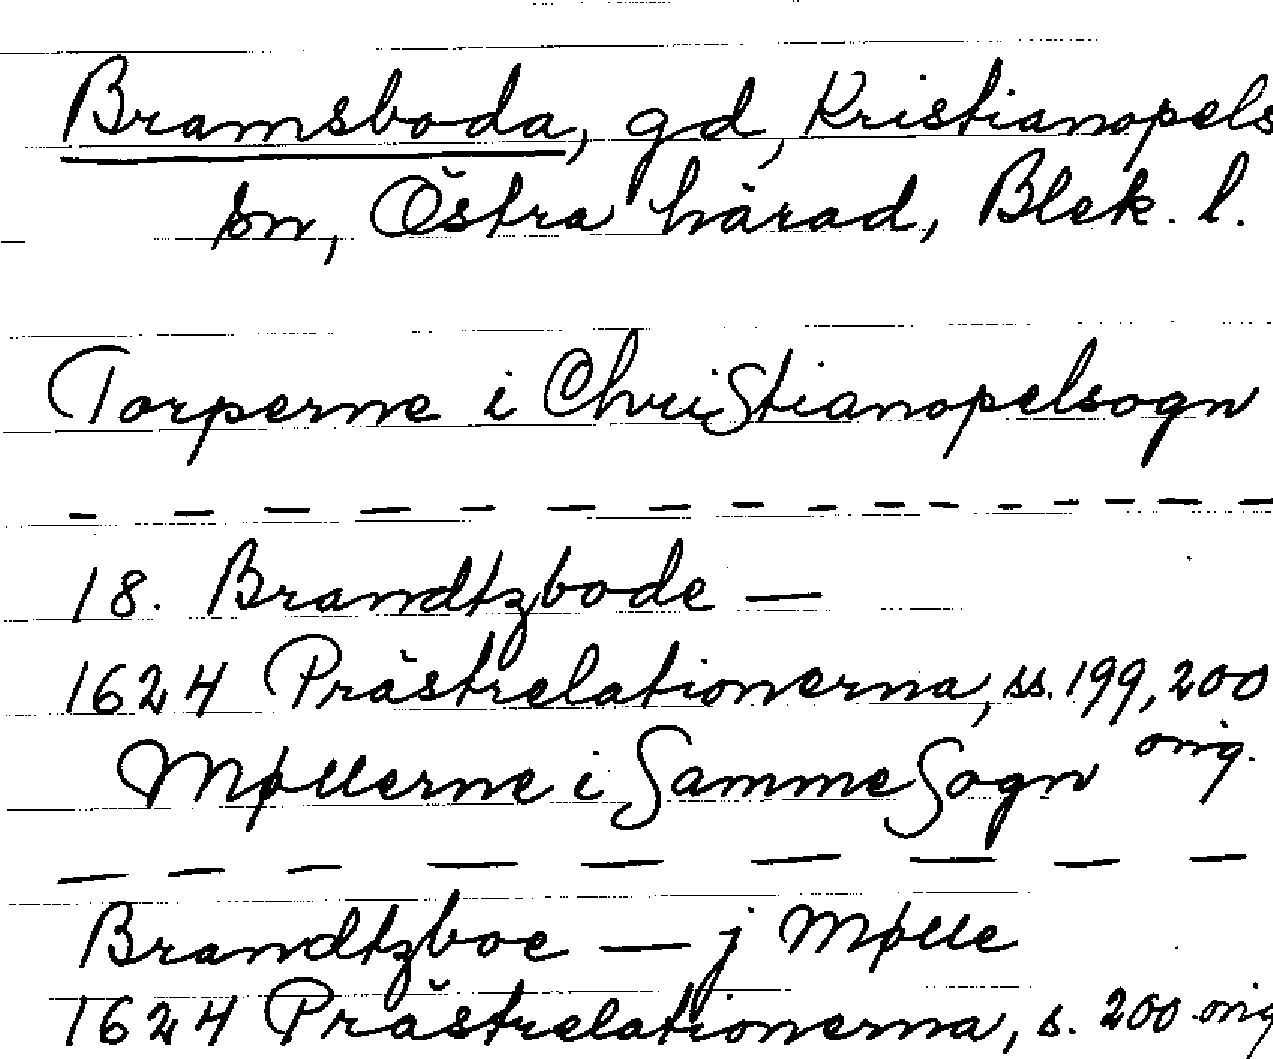 Bramsboda, gd, Kristianopels
sn, Östra härad, Blek. l.
Torperne i Christianopelsogn
— — — — — — — — — — — — — —
18. Brandtzbode —
1624 Prästrelationerna, ss. 199, 200
orig.
Møllerne i Samme Sogn
— — — — — — — — —
Brandtzboe — j Mølle
1624 Prästrelationerna, s. 200 orig